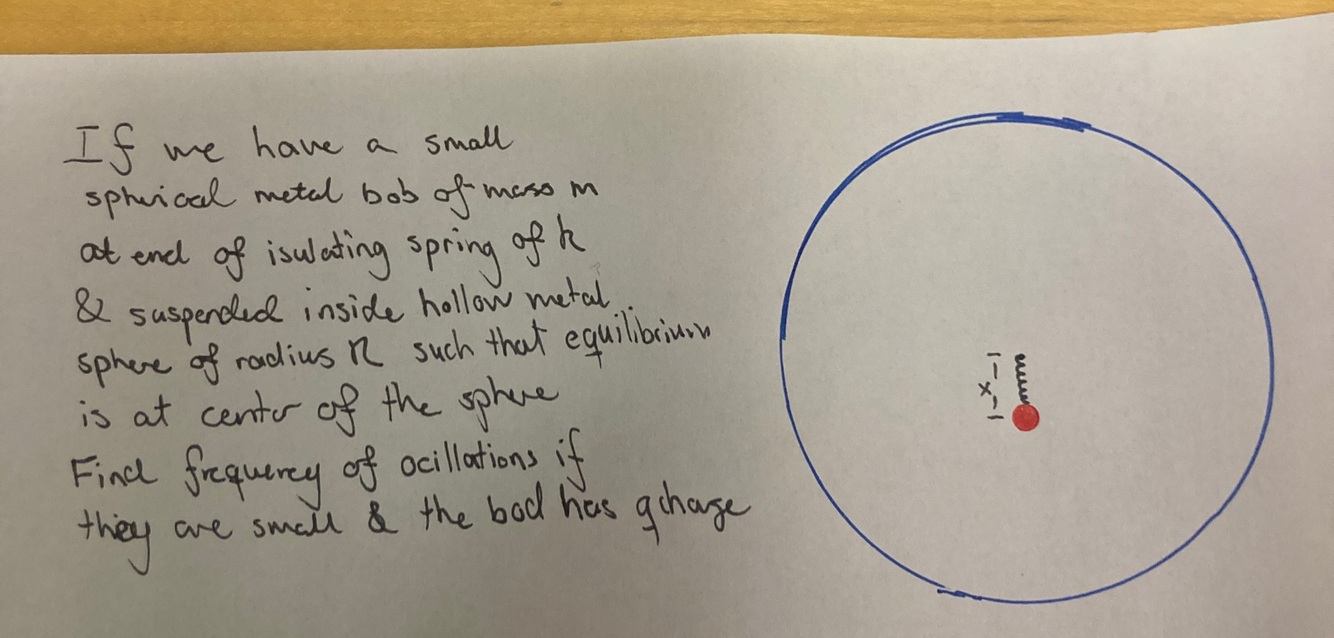 If we have a small
spherical metal bob of mass m
at end of isulating spring of k
& suspended inside hollow metal
sphere of radius R such that equilibrium
is at center of the sphere
Find frequency of ocillations if
they are small & the bod has q charge
x